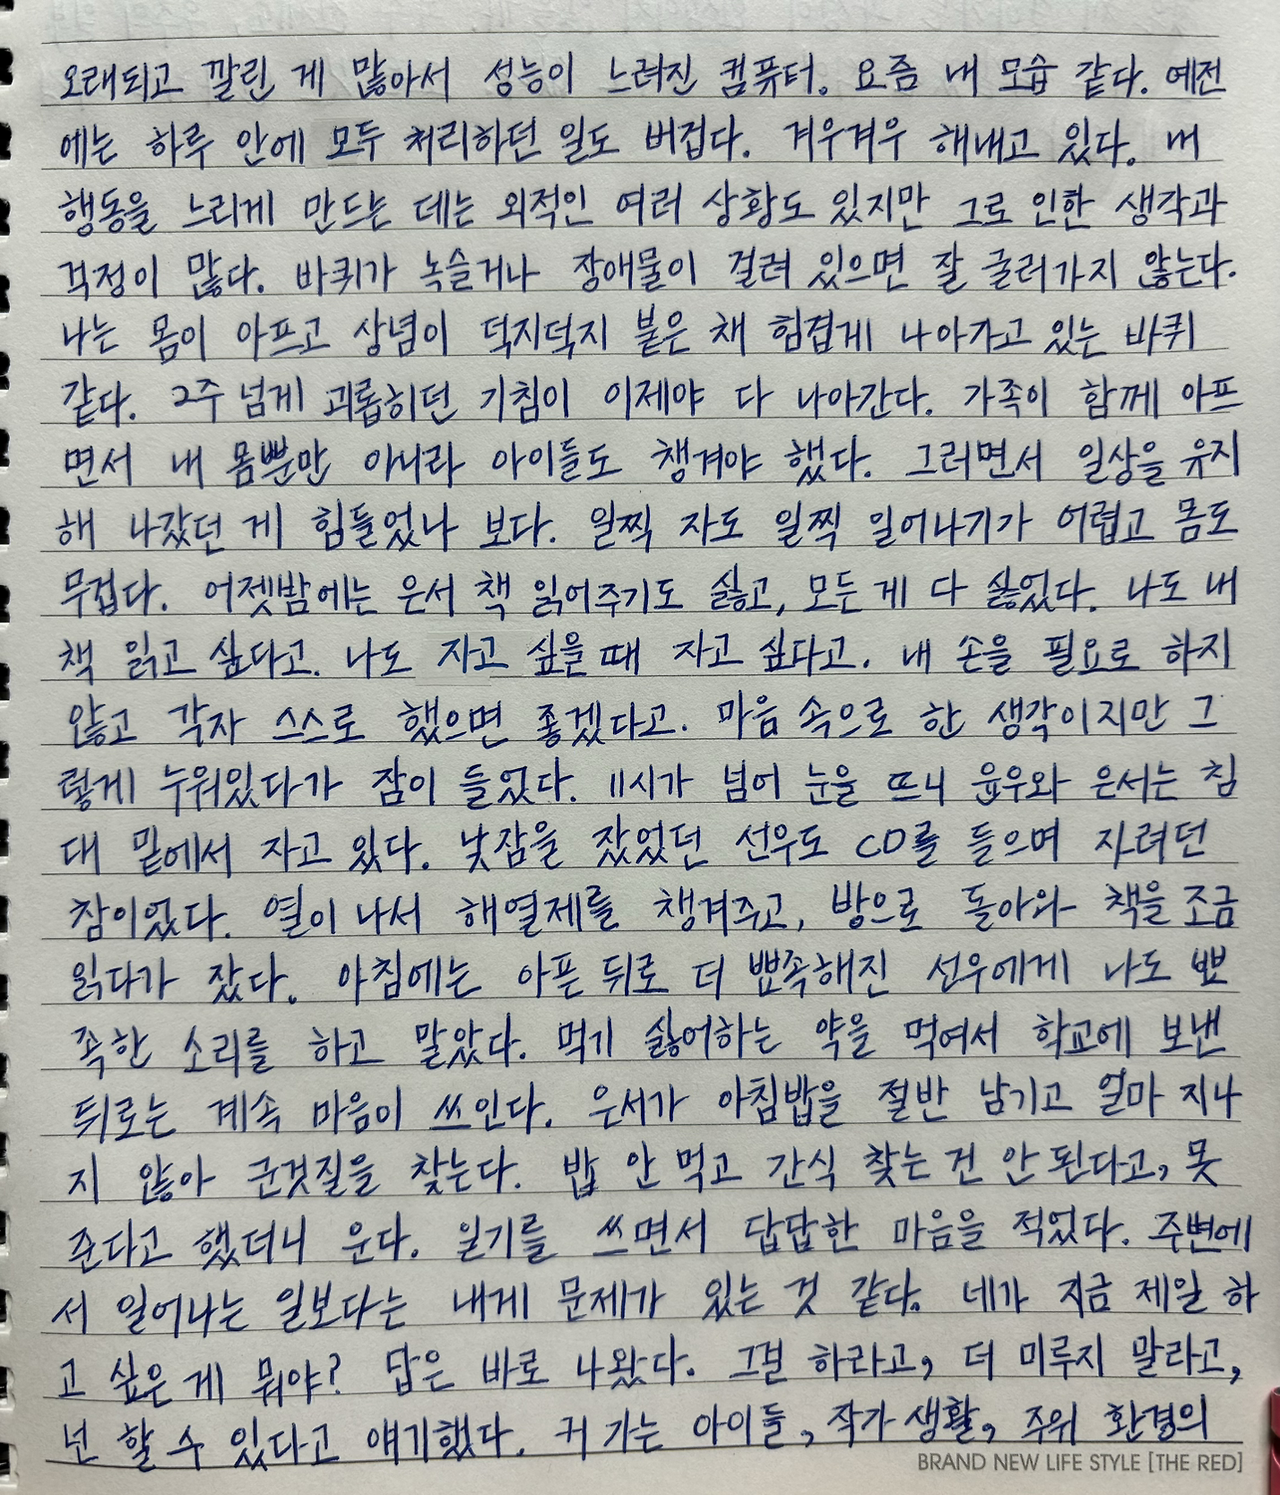 오래되고 깔린 게 많아서 성능이 느려진 컴퓨터. 요즘 내 모습 같다. 예전
에는 하루 안에 모두 처리하던 일도 버겁다. 겨우겨우 해내고 있다. 내
행동을 느리게 만드는 데는 외적인 여러 상황도 있지만 그로 인한 생각과
걱정이 많다. 바퀴가 녹슬거나 장애물이 걸려 있으면 잘 굴러가지 않는다.
나는 몸이 아프고 상념이 덕지덕지 붙은 채 힘겹게 나아가고 있는 바퀴
같다. 2주 넘게 괴롭히던 기침이 이제야 다 나아간다. 가족이 함께 아프
면서 내 몸뿐만 아니라 아이들도 챙겨야 했다. 그러면서 일상을 유지
해 나갔던 게 힘들었나 보다. 일찍 자도 일찍 일어나기가 어렵고 몸도
무겁다. 어젯밤에는 은서 책 읽어주기도 싫고, 모든 게 다 싫었다. 나도 내
책 읽고 싶다고. 나도 자고 싶을 때 자고 싶다고. 내 손을 필요로 하지
않고 각자 스스로 했으면 좋겠다고. 마음 속으로 한 생각이지만 그
렇게 누워있다가 잠이 들었다. 11시가 넘어 눈을 뜨니 윤우와 은서는 침
대 밑에서 자고 있다. 낮잠을 잤었던 선우도 CD를 들으며 자려던
참이었다. 열이 나서 해열제를 챙겨주고, 방으로 돌아와 책을 조금
읽다가 잤다. 아침에는 아픈 뒤로 더 뾰족해진 선우에게 나도 뾰
족한 소리를 하고 말았다. 먹기 싫어하는 약을 먹여서 학교에 보낸
뒤로는 계속 마음이 쓰인다. 은서가 아침밥을 절반 남기고 얼마 지나
지 않아 군것질을 찾는다. 밥 안 먹고 간식 찾는 건 안 된다고, 못
준다고 했더니 운다. 일기를 쓰면서 답답한 마음을 적었다. 주변에
서 일어나는 일보다는 내게 문제가 있는 것 같다. 네가 지금 제일 하
고 싶은 게 뭐야? 답은 바로 나왔다. 그걸 하라고, 더 미루지 말라고,
넌 할 수 있다고 얘기했다. 커 가는 아이들, 작가 생활, 주위 환경의
BRAND NEW LIFE STYLE [THE RED]